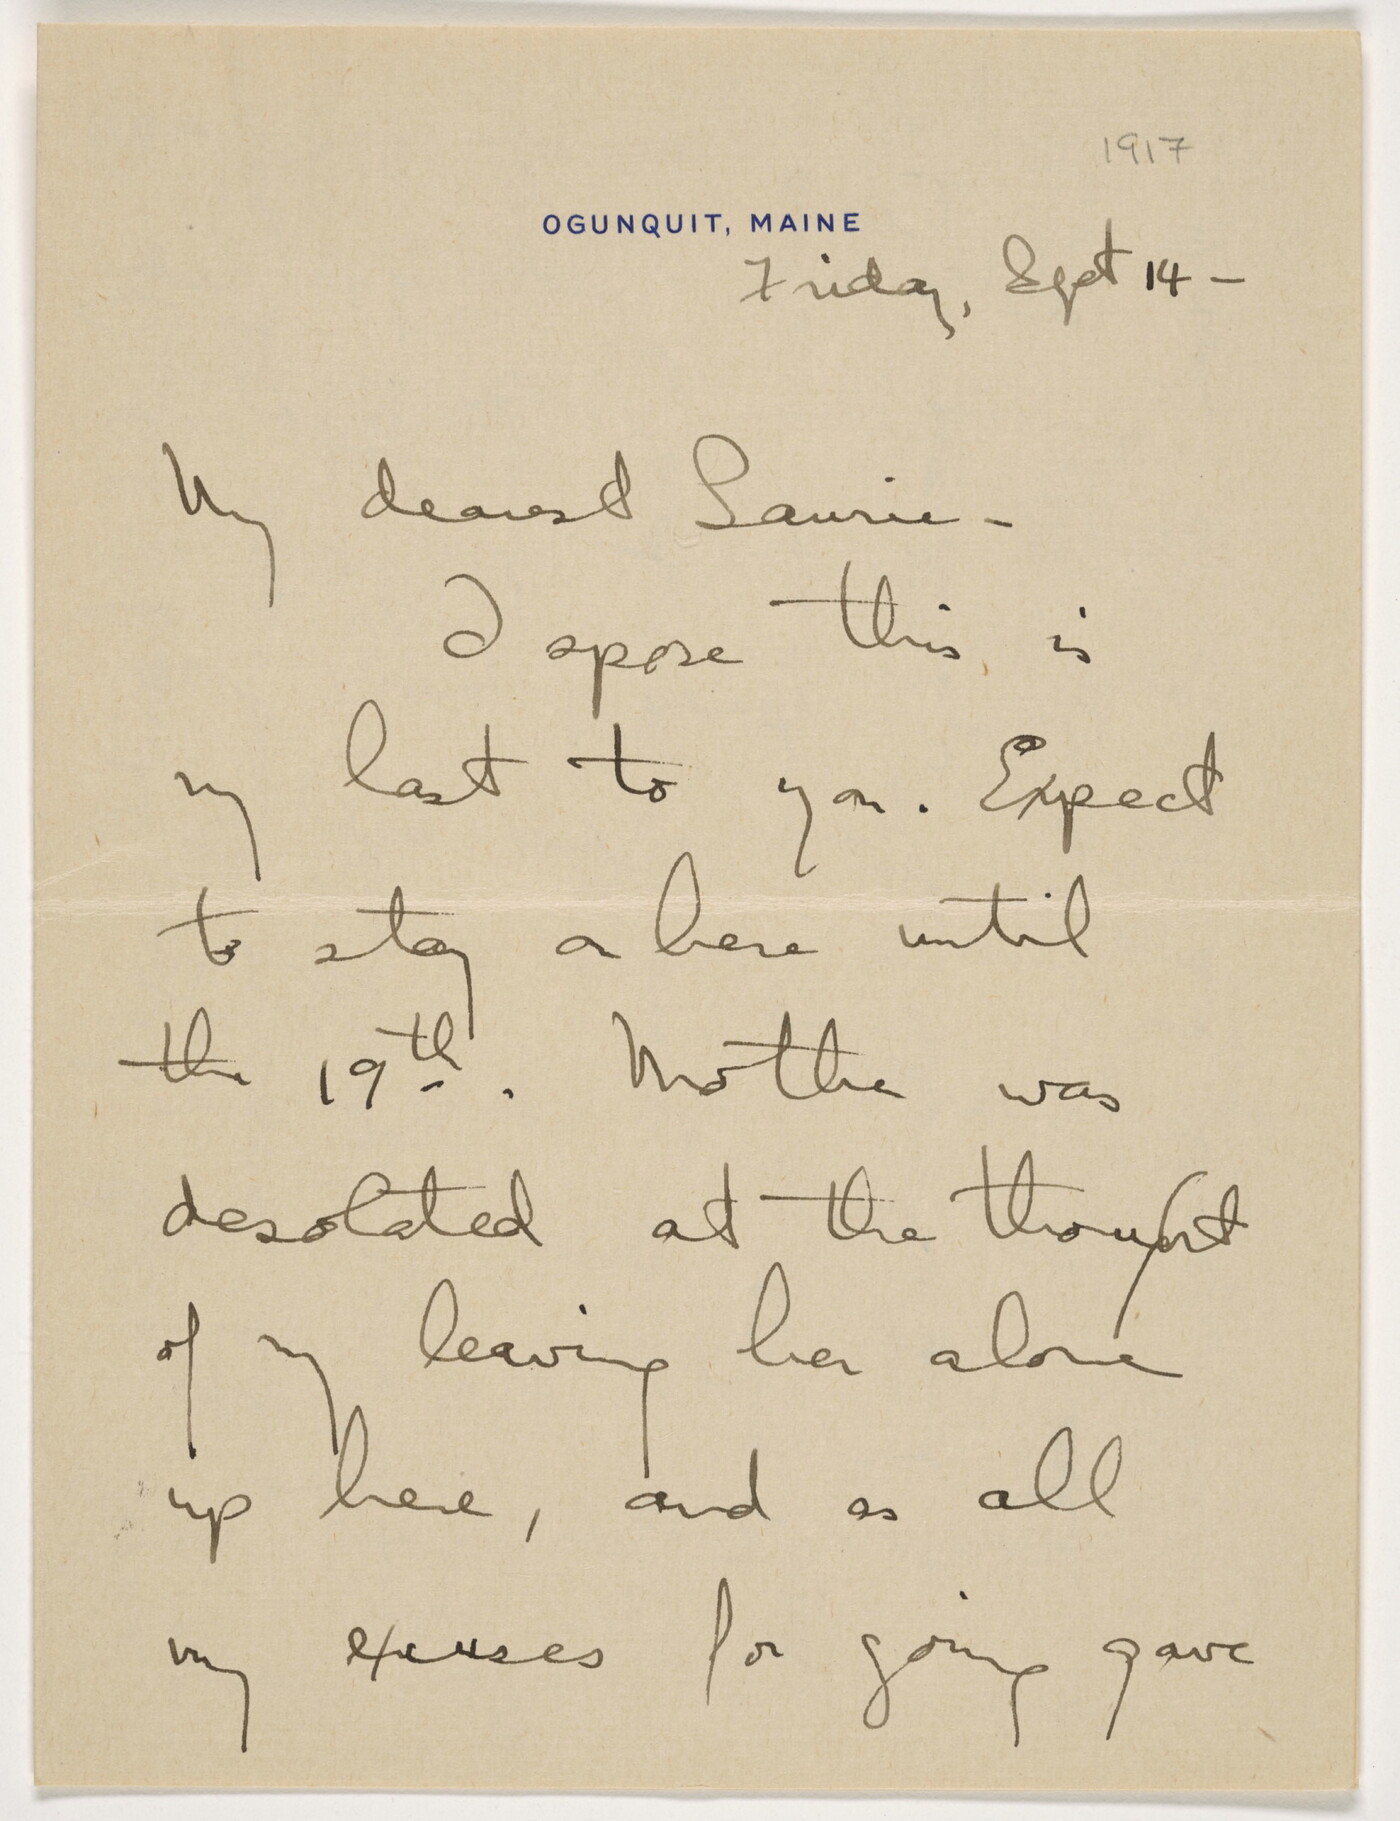 1917
OGUNQUIT, MAINE
Friday, Sept 14 –
My dearest Laurie –
I spose this is
my last to you. Expect
to stay on here until
the 19th. Mother was
desolated at the thought
of my leaving her alone
up here, and as all
my excuses for going gave